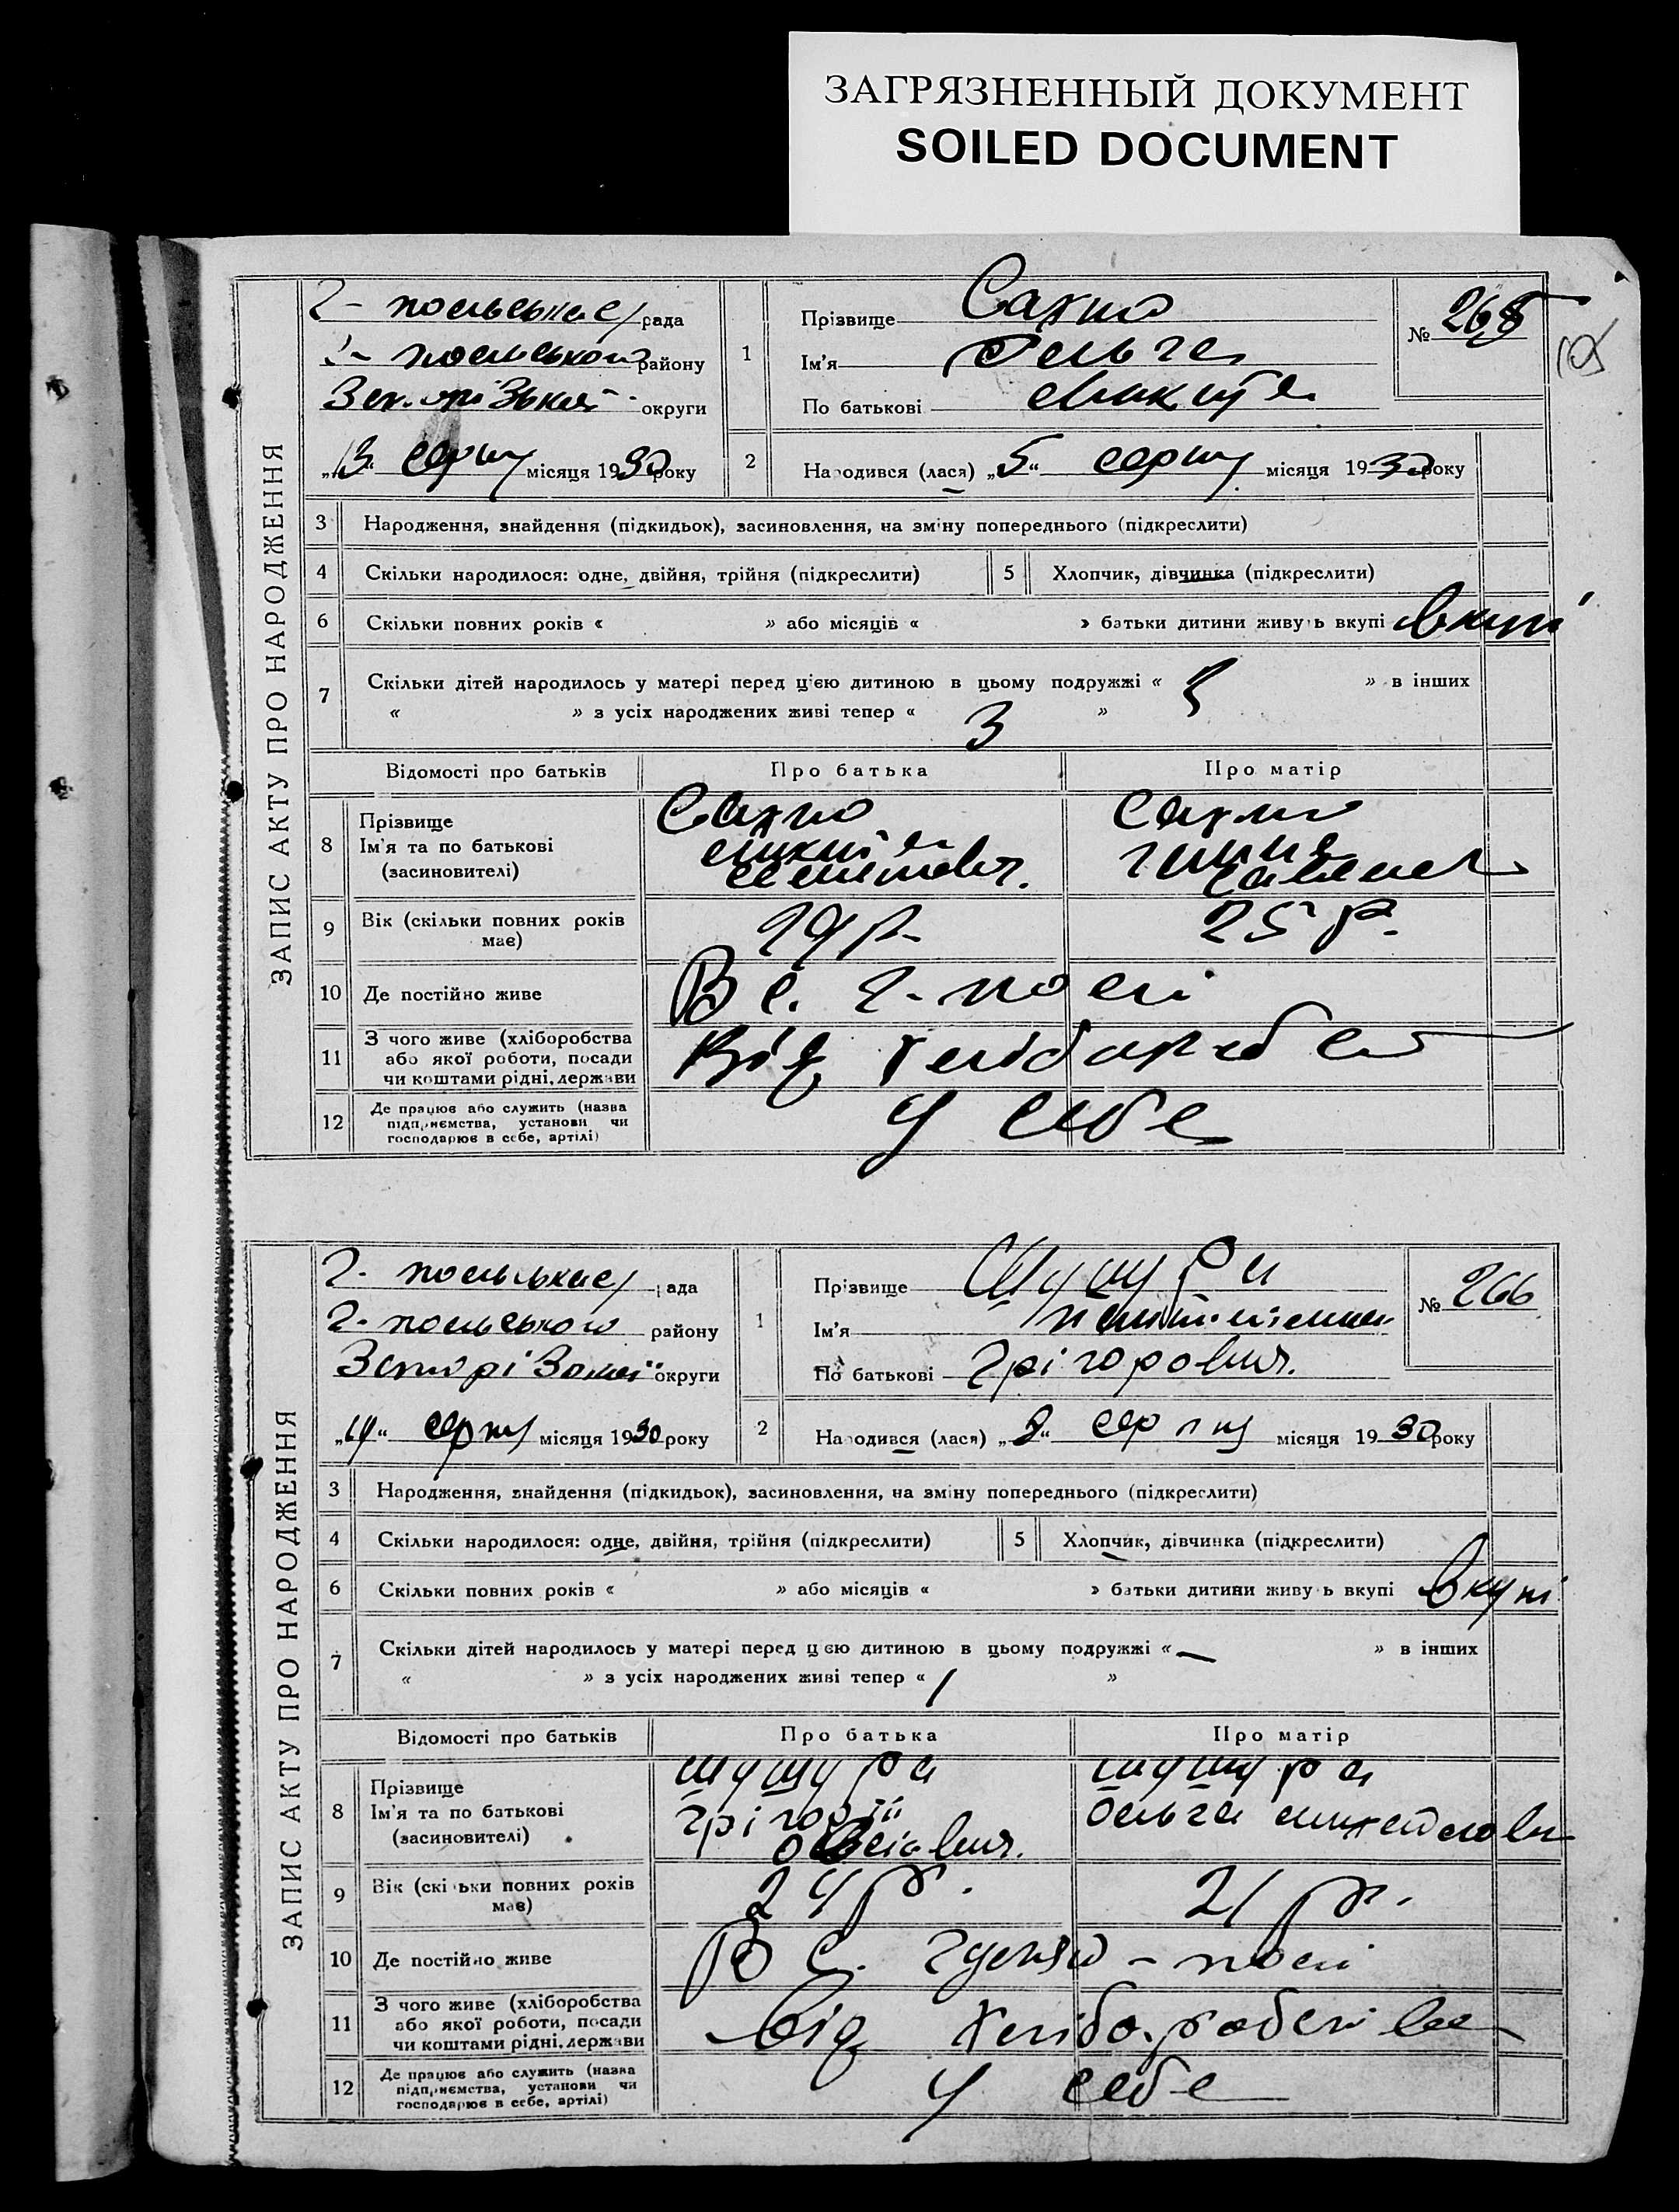 ЗАГРЯЗНЕННЫЙ ДОКУМЕНТ
SOILED DOCUMENT
ЗАПИС АКТУ ПРО НАРОДЖЕННЯ
рада
району
округи
"13" серпн місяця 1930 року
1
Прізвище Сахно
Ім'я Ольга
По батькові Микит
№ 265
2
Народився (лася) "5" серпн місяця 1930 року
3 Народження, знайдення (підкидьок), засиновлення, на зміну попереднього (підкреслити)
4 Скільки народилося: одне, двійня, трійня (підкреслити) 5 Хлопчик, дівчинка (підкреслити)
6 Скільки повних років « » або місяців « » батьки дитини живуть вкупі вкупі
7 Скільки дітей народилось у матері перед цією дитиною в цьому подружжі « » в інших
« » з усіх народжених живі тепер « 3 »
Відомості про батьків Про батька Про матір
8 Прізвище Сахно Сахно
Ім'я та по батькові
(засновителі)
9 Вік (скільки повних років має) 29 р. 25 р.
10 Де постійно живе В с. Г-полі
11 З чого живе (хліборобства або якої роботи, посади чи коштами рідні, держави Від
12 Де працює або служить (назва підприємства, установи чи господарює в себе, артілі) У себе
ЗАПИС АКТУ ПРО НАРОДЖЕННЯ
рада
Г-польського району
округи
"14" серпн місяця 1930 року
1
Прізвище Шушура
Ім'я
По батькові Грігорович.
№ 266
2
Народився (лася) " " серпня місяця 1930 року
3 Народження, знайдення (підкидьок), засиновлення, на зміну попереднього (підкреслити)
4 Скільки народилося: одне, двійня, трійня (підкреслити) 5 Хлопчик, дівчинка (підкреслити)
6 Скільки повних років « » або місяців « » батьки дитини живуть вкупі вкупі
7 Скільки дітей народилось у матері перед цією дитиною в цьому подружжі « — » в інших
« » з усіх народжених живі тепер « 1 »
Відомості про батьків Про батька Про матір
8 Прізвище Шушура Шушура
Ім'я та по батькові Грігорій Ольга
(засиновителі)
9 Вік (скільки повних років має) 24 р. 21 р.
10 Де постійно живе В с. Гуляй-полі
11 З чого живе (хліборобства або якої роботи, посади чи коштами рідні, держави Від
12 Де працює або служить (назва підприємства, установи чи господарює в себе, артілі) У себе